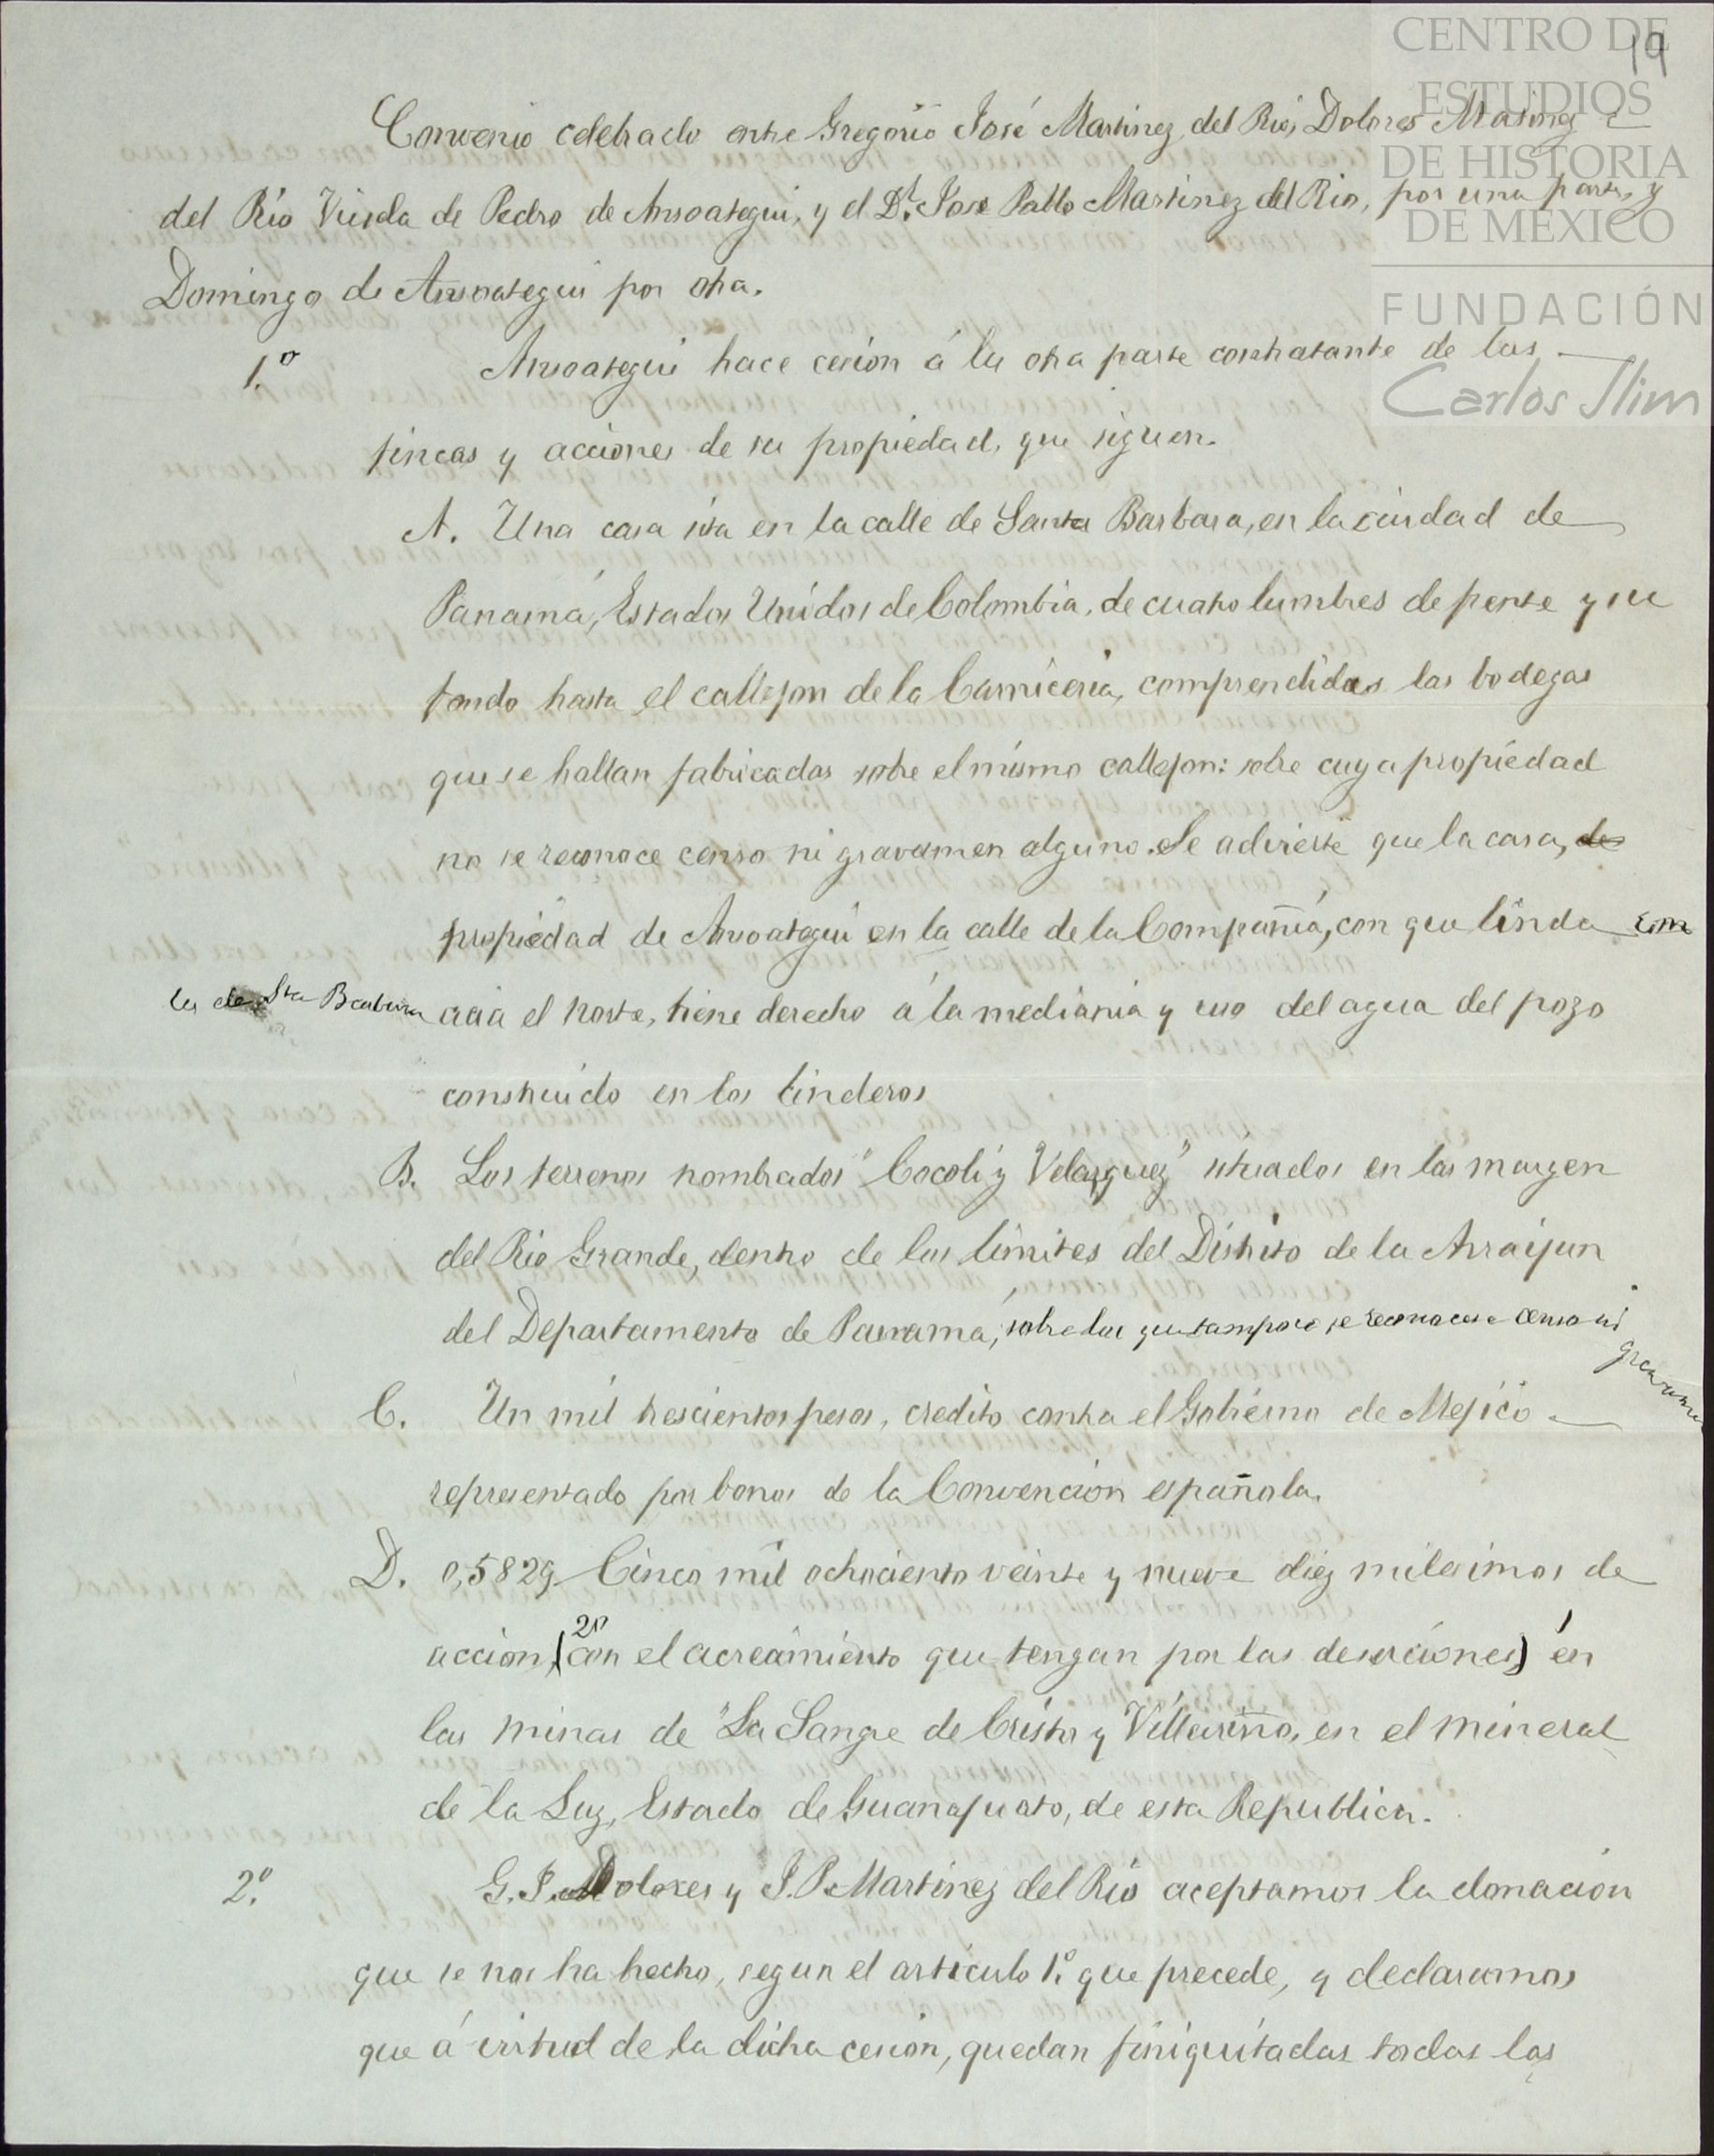 CENTRO DE
ESTUDIOS
DE HISTORIA
DE MÉXICO
FUNDACIÓN
Carlos Slim
19
Convenio celebrado entre Gregorio José Martinez del Rio, Dolores Martinez
del Rio Viuda de Pedro de Ansoategui, y el Dr. José Pablo Martinez del Rio, por una parte, y
Domingo de Ansoategui por otra.
1.º Ansoategui hace cesion á la otra parte contratante de las
fincas y acciones de su propiedad, que siguen.
A. Una casa sita en la calle de Santa Barbara, en la ciudad de
Panamá, Estados Unidos de Colombia, de cuatro lumbres de frente y su
fondo hasta el callejon de la Carniceria, comprendidas las bodegas
que se hallan fabricadas sobre el mismo callejon: sobre cuya propiedad
no se reconoce censo ni gravamen alguno. Se advierte que la casa, de
propiedad de Ansoategui en la calle de la Compañia, con que linda
la de Sta Barbara acia el norte, tiene derecho á la mediania y uso del agua del pozo
construido en los linderos
B. Los terrenos nombrados "Cocoli y Velasquez" situados en las margen
del Rio Grande, dentro de los limites del Distrito de la Arraijan
del Departamento de Panama, sobre los que tampoco se reconoce censo ni
gravamen
C. Un mil trescientos pesos, credito contra el Gobierno de Mejico
representado por bonos de la Convencion española.
D. 0,5829 Cinco mil ochociento veinte y nueve diez milesimos de
accion, (con el acrecimiento que tengan por las deserciones) en
las minas de "La Sangre de Cristo y Villariño, en el mineral
de la Luz, Estado de Guanajuato, de esta Republica.
2.º G. J. Dolores y J. P. Martinez del Rio aceptamos la donacion
que se nos ha hecho, segun el articulo 1.º que precede, y declaramos
que á virtud de la dicha cesion, quedan finiquitadas todas las